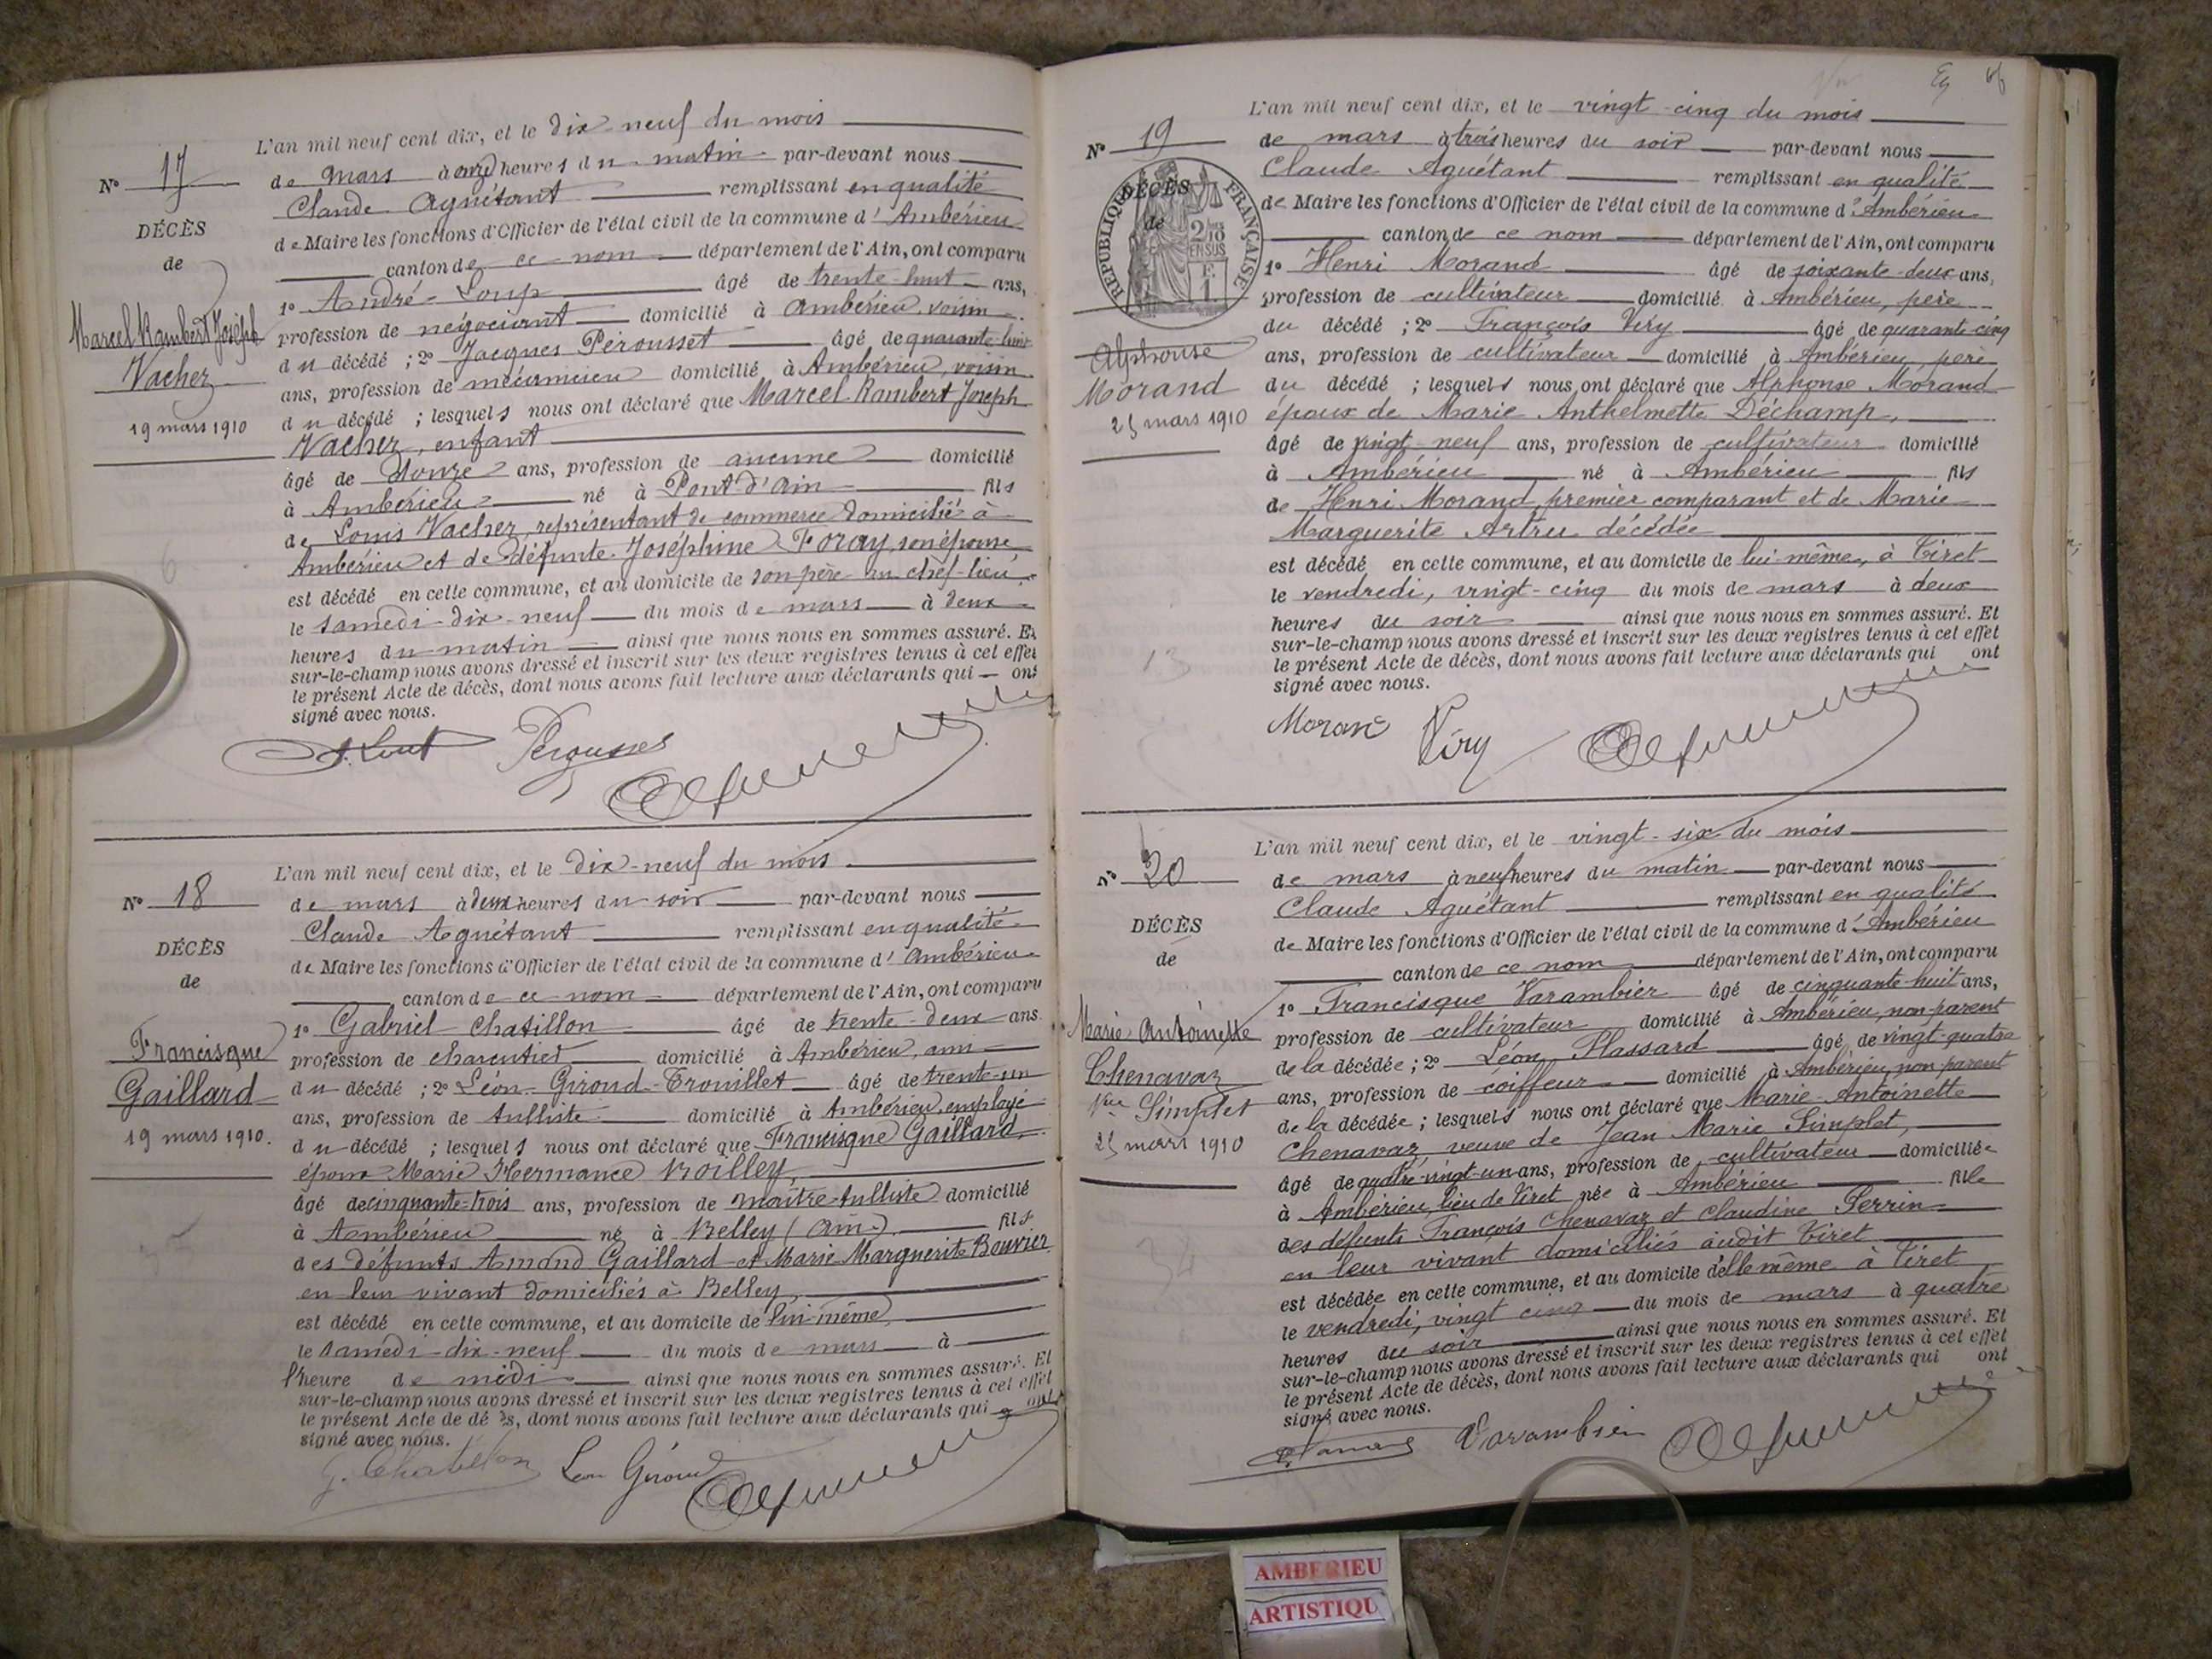 N° 17
DÉCÈS
de
Marcel Rambert Joseph
Vacher
19 mars 1910
L'an mil neuf cent dix, et le dix-neuf du mois
de mars à onze heures du matin par-devant nous
Claude Aguétant remplissant en qualité
de Maire les fonctions d'Officier de l'état civil de la commune d'Ambérieu
canton de ce nom département de l'Ain, ont comparu
1° André Loup âgé de trente-huit ans,
profession de négociant domicilié à Ambérieu, voisin
du décédé ; 2° Jacques Pérousset âgé de quarante-huit
ans, profession de mécanicien domicilié à Ambérieu, voisin
du décédé ; lesquels nous ont déclaré que Marcel Rambert Joseph
Vacher, enfant
âgé de douze ans, profession de aucune domicilié
à Ambérieu né à Pont-d'Ain fils
de Louis Vacher, représentant de commerce domicilié à
Ambérieu et de défunte Joséphine Foray, son épouse
est décédé en cette commune, et au domicile de son père au chef-lieu,
le samedi dix-neuf du mois de mars à deux
heures du matin ainsi que nous nous en sommes assuré. Et
sur-le-champ nous avons dressé et inscrit sur les deux registres tenus à cet effet
le présent Acte de décès, dont nous avons fait lecture aux déclarants qui ont
signé avec nous.
Pérousset
N° 18
DÉCÈS
de
Francisque
Gaillard
19 mars 1910.
L'an mil neuf cent dix, et le dix-neuf du mois
de mars à deux heures du soir par-devant nous
Claude Aguétant remplissant en qualité
de Maire les fonctions d'Officier de l'état civil de la commune d'Ambérieu
canton de ce nom département de l'Ain, ont comparu
1° Gabriel Chatillon âgé de trente-deux ans
profession de charentier domicilié à Ambérieu, ami
du décédé ; 2° Léon Giroud-Trouillet âgé de trente-un
ans, profession de tulliste domicilié à Ambérieu, employé
du décédé ; lesquels nous ont déclaré que Francisque Gaillard,
époux Marie Hermance Roilley,
âgé de cinquante-trois ans, profession de maître-tulliste domicilié
à Ambérieu né à Belley (Ain) fils
des défunts Amand Gaillard et Marie Marguerite Bouvier
en leur vivant domiciliés à Belley,
est décédé en cette commune, et au domicile de lui-même,
le samedi dix-neuf du mois de mars à
l'heure de midi ainsi que nous nous en sommes assuré. Et
sur-le-champ nous avons dressé et inscrit sur les deux registres tenus à cet effet
le présent Acte de décès, dont nous avons fait lecture aux déclarants qui ont
signé avec nous.
G. Chatillon Leon Giroud
N° 19
DÉCÈS
de
RÉPUBLIQUE FRANÇAISE
2/10 EN SUS
F. 1
Alphonse
Morand
25 mars 1910
L'an mil neuf cent dix, et le vingt-cinq du mois
de mars à trois heures du soir par-devant nous
Claude Aguétant remplissant en qualité
de Maire les fonctions d'Officier de l'état civil de la commune d'Ambérieu
canton de ce nom département de l'Ain, ont comparu
1° Henri Morand âgé de soixante-deux ans,
profession de cultivateur domicilié à Ambérieu, père
du décédé ; 2° François Viry âgé de quarante-cinq
ans, profession de cultivateur domicilié à Ambérieu, père
du décédé ; lesquels nous ont déclaré que Alphonse Morand
époux de Marie Anthelmette Déchamp,
âgé de vingt-neuf ans, profession de cultivateur domicilié
à Ambérieu né à Ambérieu fils
de Henri Morand, premier comparant et de Marie
Marguerite Artru décédée
est décédé en cette commune, et au domicile de lui-même, à Tiret
le vendredi, vingt-cinq du mois de mars à deux
heures du soir ainsi que nous nous en sommes assuré. Et
sur-le-champ nous avons dressé et inscrit sur les deux registres tenus à cet effet
le présent Acte de décès, dont nous avons fait lecture aux déclarants qui ont
signé avec nous.
Morand Viry
N° 20
DÉCÈS
de
Marie Antoinette
Chenavaz
Vve Simplet
25 mars 1910
L'an mil neuf cent dix, et le vingt-six du mois
de mars à neuf heures du matin par-devant nous
Claude Aguétant remplissant en qualité
de Maire les fonctions d'Officier de l'état civil de la commune d'Ambérieu
canton de ce nom département de l'Ain, ont comparu
1° Francisque Varambier âgé de cinquante-huit ans,
profession de cultivateur domicilié à Ambérieu, non parent
de la décédée ; 2° Léon Plassard âgé de vingt-quatre
ans, profession de coiffeur domicilié à Ambérieu, non parent
de la décédée ; lesquels nous ont déclaré que Marie-Antoinette
Chenavaz veuve de Jean Marie Simplet,
âgé de quatre-vingt-un ans, profession de cultivateur domiciliée
à Ambérieu, lieu de Tiret née à Ambérieu fille
des défunts François Chenavaz et Claudine Perrin
en leur vivant domiciliés audit Tiret
est décédée en cette commune, et au domicile d'elle même à Tiret
le vendredi, vingt cinq du mois de mars à quatre
heures du soir ainsi que nous nous en sommes assuré. Et
sur-le-champ nous avons dressé et inscrit sur les deux registres tenus à cet effet
le présent Acte de décès, dont nous avons fait lecture aux déclarants qui ont
signé avec nous.
Varambier
13
34
AMBERIEU
ARTISTIQU